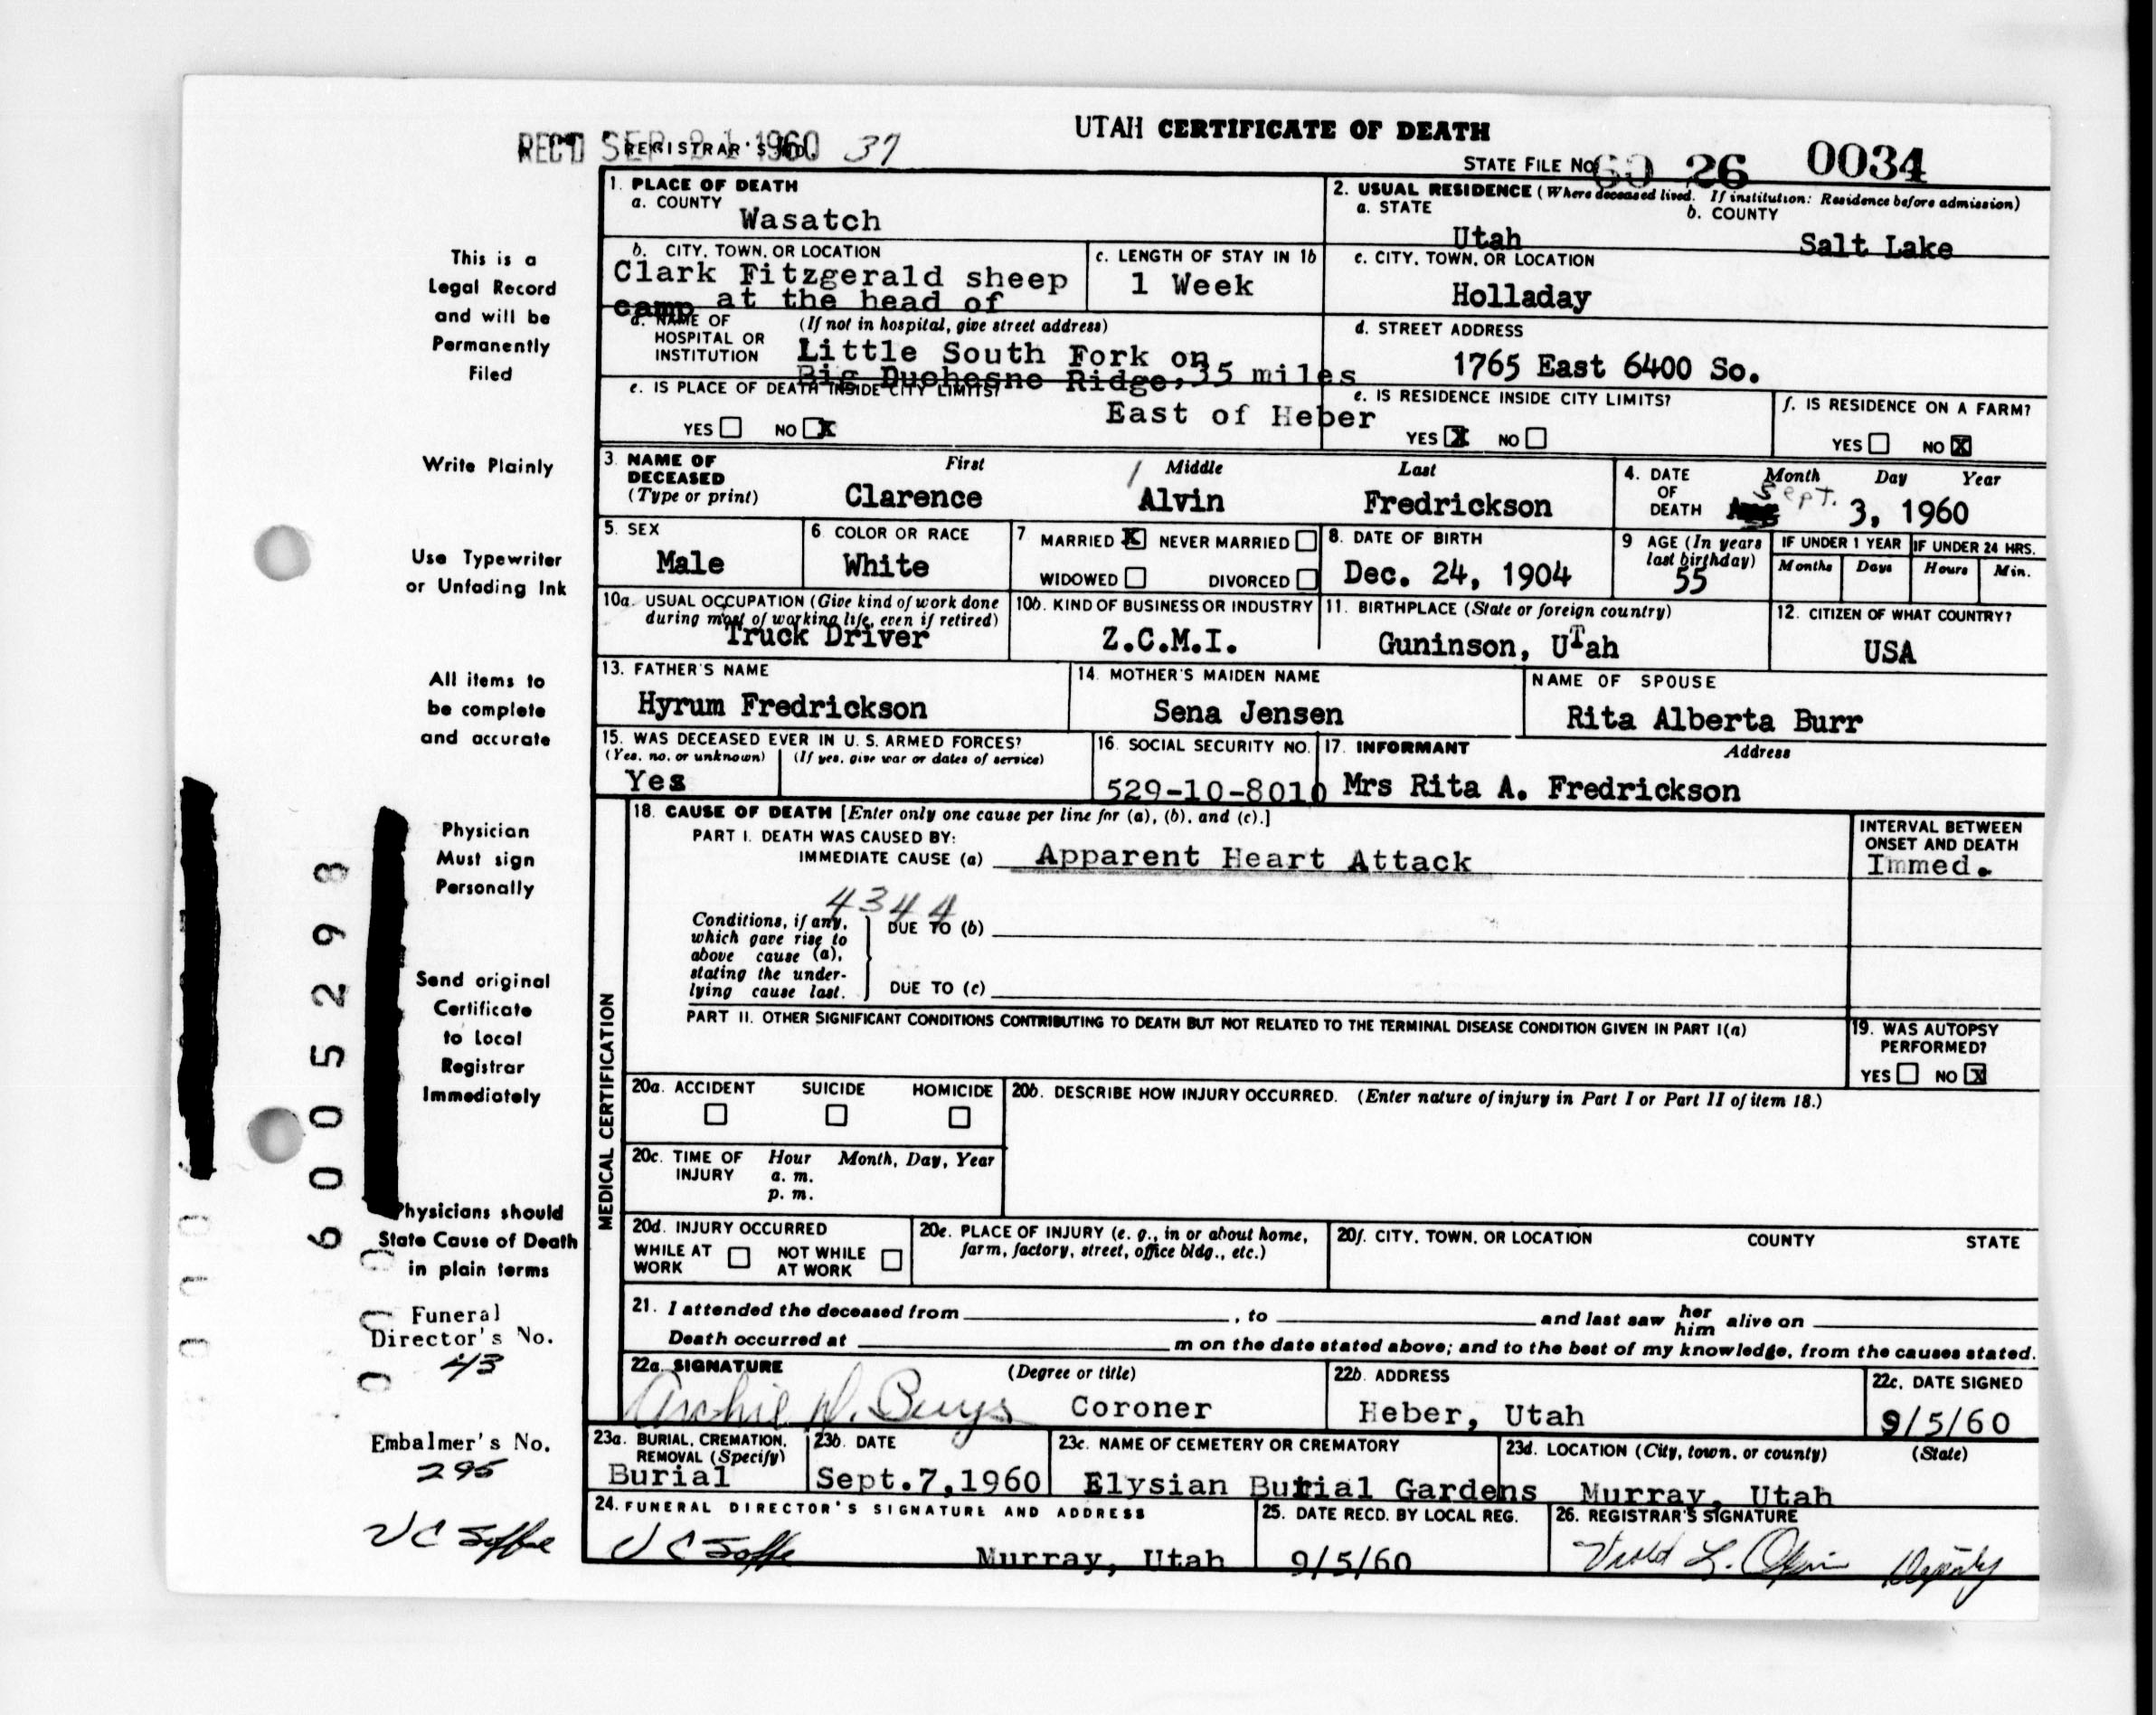 UTAH CERTIFICATE OF DEATH
REC'D SEP 21 1960 REGISTRAR'S NO. 37
STATE FILE NO. 60 26 0034
1. PLACE OF DEATH
a. COUNTY
Wasatch
2. USUAL RESIDENCE (Where deceased lived. If institution: Residence before admission)
a. STATE
Utah
b. COUNTY
Salt Lake
b. CITY, TOWN, OR LOCATION
Clark Fitzgerald sheep
camp at the head of
c. LENGTH OF STAY IN 1b
1 Week
c. CITY, TOWN, OR LOCATION
Holladay
d. NAME OF HOSPITAL OR INSTITUTION
(If not in hospital, give street address)
Little South Fork on
Big Duchesne Ridge, 35 miles
East of Heber
d. STREET ADDRESS
1765 East 6400 So.
e. IS PLACE OF DEATH INSIDE CITY LIMITS?
YES NO X
e. IS RESIDENCE INSIDE CITY LIMITS?
YES X NO
f. IS RESIDENCE ON A FARM?
YES NO X
3. NAME OF DECEASED
(Type or print)
First Middle Last
Clarence Alvin Fredrickson
4. DATE OF DEATH
Month Day Year
Sept. 3, 1960
5. SEX
Male
6 COLOR OR RACE
White
7 MARRIED X NEVER MARRIED
WIDOWED DIVORCED
8. DATE OF BIRTH
Dec. 24, 1904
9 AGE (In years last birthday)
55
IF UNDER 1 YEAR
Months Days
IF UNDER 24 HRS.
Hours Min.
10a. USUAL OCCUPATION (Give kind of work done
during most of working life, even if retired)
Truck Driver
10b. KIND OF BUSINESS OR INDUSTRY
Z.C.M.I.
11. BIRTHPLACE (State or foreign country)
Guninson, UTah
12. CITIZEN OF WHAT COUNTRY?
USA
13. FATHER'S NAME
Hyrum Fredrickson
14. MOTHER'S MAIDEN NAME
Sena Jensen
NAME OF SPOUSE
Rita Alberta Burr
15. WAS DECEASED EVER IN U. S. ARMED FORCES?
(Yes, no, or unknown) (If yes, give war or dates of service)
Yes
16. SOCIAL SECURITY NO.
529-10-8010
17. INFORMANT Address
Mrs Rita A. Fredrickson
MEDICAL CERTIFICATION
18. CAUSE OF DEATH [Enter only one cause per line for (a), (b), and (c).]
PART I. DEATH WAS CAUSED BY:
IMMEDIATE CAUSE (a) Apparent Heart Attack
INTERVAL BETWEEN
ONSET AND DEATH
Immed.
4344
Conditions, if any,
which gave rise to
above cause (a),
stating the under-
lying cause last.
DUE TO (b)
DUE TO (c)
PART II. OTHER SIGNIFICANT CONDITIONS CONTRIBUTING TO DEATH BUT NOT RELATED TO THE TERMINAL DISEASE CONDITION GIVEN IN PART I(a)
19. WAS AUTOPSY
PERFORMED?
YES NO X
20a. ACCIDENT SUICIDE HOMICIDE
20b. DESCRIBE HOW INJURY OCCURRED. (Enter nature of injury in Part I or Part II of item 18.)
20c. TIME OF INJURY
Hour Month, Day, Year
a. m.
p. m.
20d. INJURY OCCURRED
WHILE AT WORK NOT WHILE AT WORK
20e. PLACE OF INJURY (e. g., in or about home,
farm, factory, street, office bldg., etc.)
20f. CITY, TOWN, OR LOCATION COUNTY STATE
21. I attended the deceased from , to and last saw her him alive on
Death occurred at m on the date stated above; and to the best of my knowledge, from the causes stated.
22a. SIGNATURE (Degree or title)
Archie D. Buys Coroner
22b. ADDRESS
Heber, Utah
22c. DATE SIGNED
9/5/60
23a. BURIAL, CREMATION,
REMOVAL (Specify)
Burial
23b. DATE
Sept.7,1960
23c. NAME OF CEMETERY OR CREMATORY
Elysian Burial Gardens
23d. LOCATION (City, town, or county) (State)
Murray, Utah
24. FUNERAL DIRECTOR'S SIGNATURE AND ADDRESS
V C Soffe Murray, Utah
25. DATE RECD. BY LOCAL REG.
9/5/60
26. REGISTRAR'S SIGNATURE
Deputy
This is a
Legal Record
and will be
Permanently
Filed
Write Plainly
Use Typewriter
or Unfading Ink
All items to
be complete
and accurate
Physician
Must sign
Personally
Send original
Certificate
to Local
Registrar
Immediately
Physicians should
State Cause of Death
in plain terms
Funeral
Director's No.
43
Embalmer's No.
295
V C Soffe
6005298